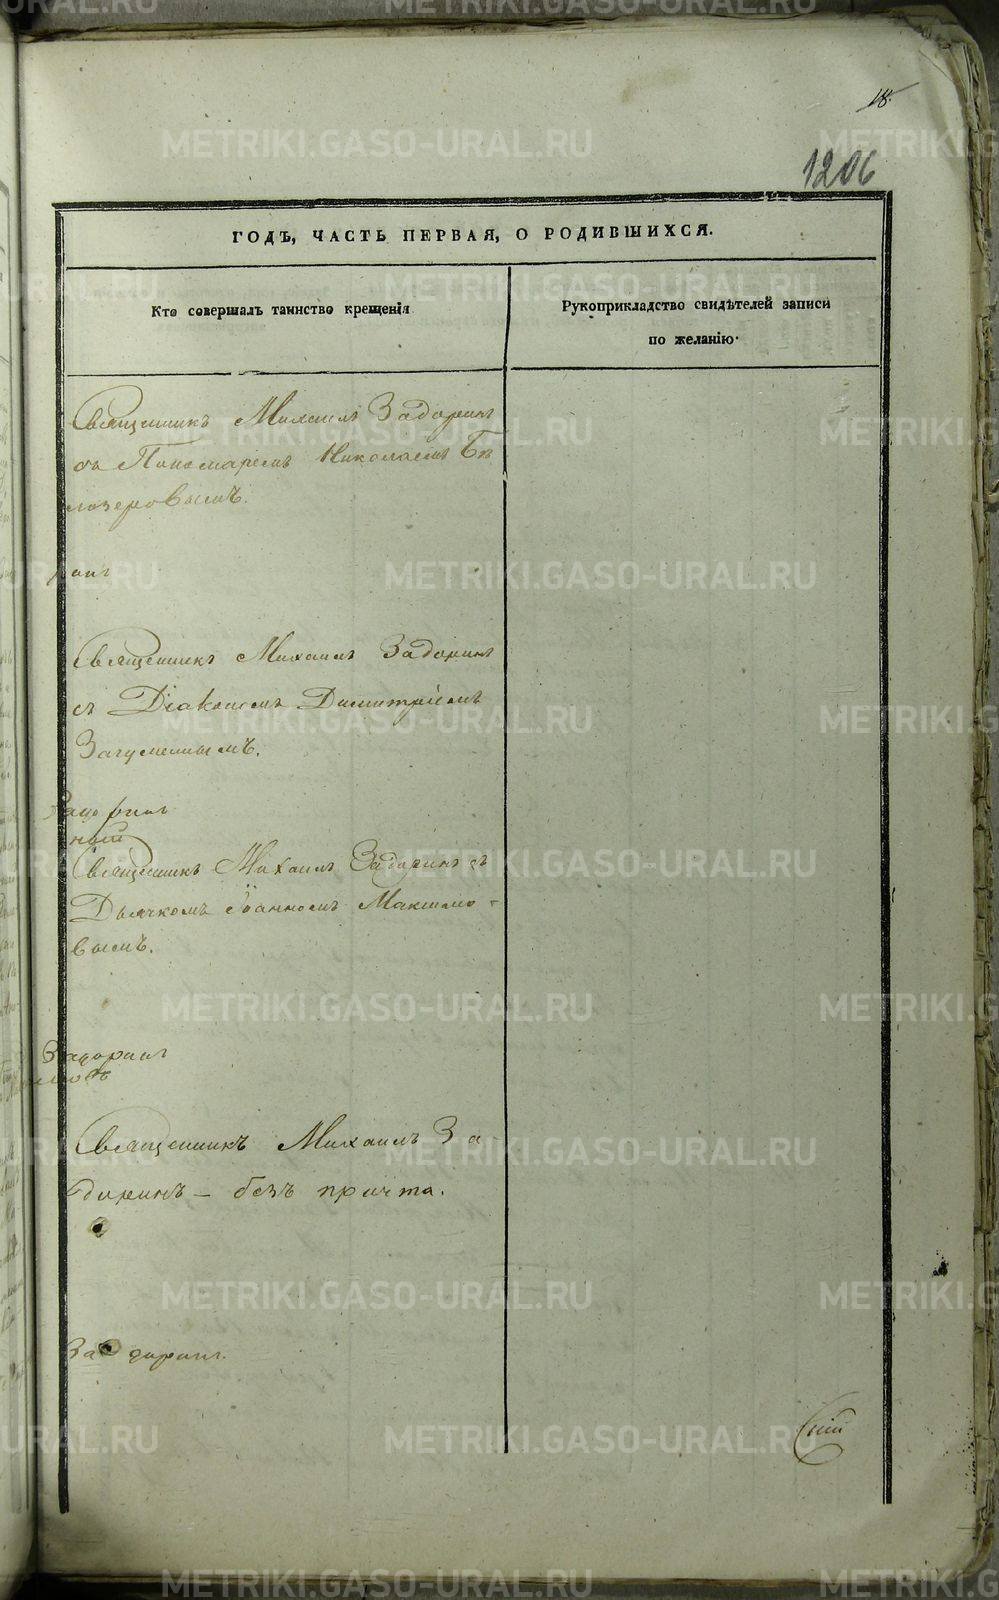 18.
1206
ГОДЪ, ЧАСТЬ ПЕРВАЯ, О РОДИВШИХСЯ.
Кто совершалъ таинство крещенія
Рукоприкладство свидѣтелей записи
по желанію.
Священникъ Михаилъ Задоринъ
съ Пономаремъ Николаемъ Бѣ
лозеровымъ.
Священникъ Михаилъ Задоринъ
съ Діакономъ Димитріемъ
Загуменнымъ.
Задоринъ
ный
Священникъ Михаилъ Задоринъ съ
Дьячкомъ Іоанномъ Максимо-
вымъ.
Задоринъ
Священникъ Михаилъ За
доринъ – безъ причта.
Задоринъ.
METRIKI.GASO-URAL.RU